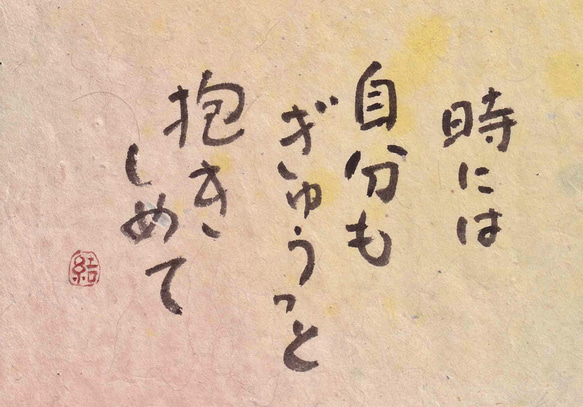 時には
自分も
ぎゅうっと
抱き
しめて
結